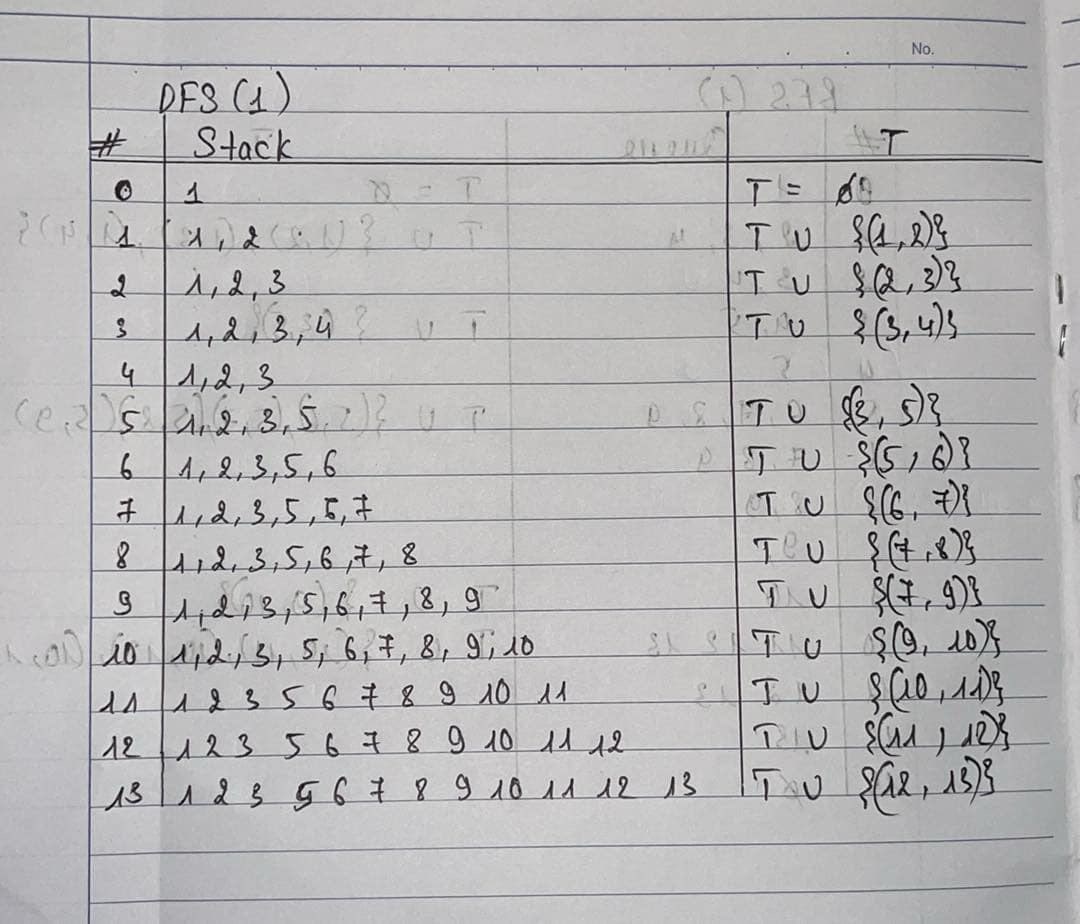 No.
DFS (1)
# Stack T
0 1 T = ∅
1 1, 2 T ∪ {(1,2)}
2 1, 2, 3 T ∪ {(2,3)}
3 1, 2, 3, 4 T ∪ {(3,4)}
4 1, 2, 3
5 1, 2, 3, 5 T ∪ {(3,5)}
6 1, 2, 3, 5, 6 T ∪ {(5,6)}
7 1, 2, 3, 5, 5, 7 T ∪ {(6,7)}
8 1, 2, 3, 5, 6, 7, 8 T ∪ {(7,8)}
9 1, 2, 3, 5, 6, 7, 8, 9 T ∪ {(7,9)}
10 1, 2, 3, 5, 6, 7, 8, 9, 10 T ∪ {(9,10)}
11 1 2 3 5 6 7 8 9 10 11 T ∪ {(10,11)}
12 1 2 3 5 6 7 8 9 10 11 12 T ∪ {(11,12)}
13 1 2 3 5 6 7 8 9 10 11 12 13 T ∪ {(12,13)}